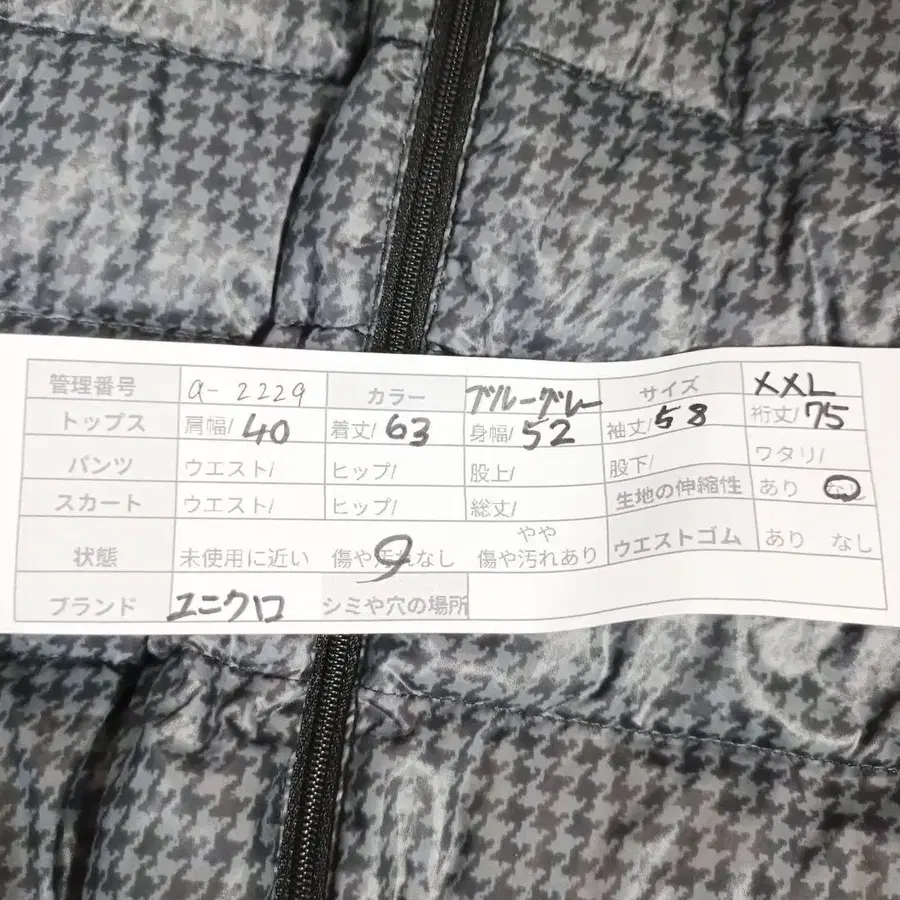 管理番号 a-2229 カラー ブルーグレー サイズ XXL
トップス 肩幅/ 40 着丈/ 63 身幅/ 52 袖丈/ 58 裄丈/ 75
パンツ ウエスト/ ヒップ/ 股上/ 股下/ ワタリ/
スカート ウエスト/ ヒップ/ 総丈/ 生地の伸縮性 あり なし
状態 未使用に近い 傷や汚れなし やや傷や汚れあり ウエストゴム あり なし
ブランド ユニクロ シミや穴の場所